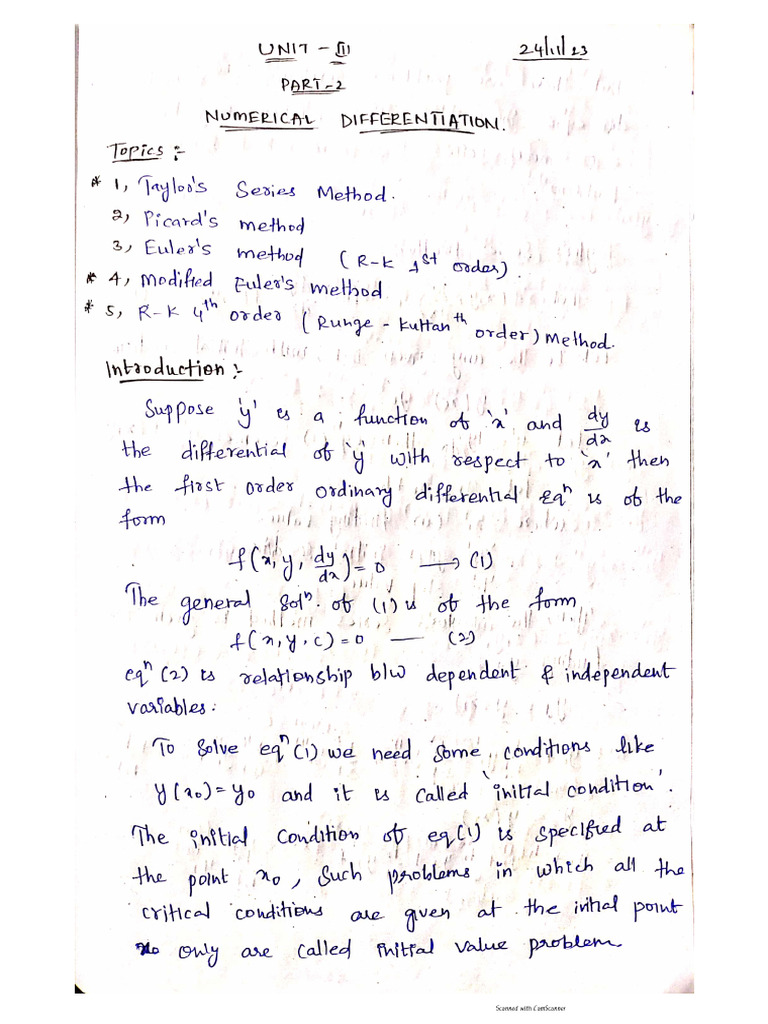 UNIT - III
24/11/23
PART-2
NUMERICAL DIFFERENTIATION.
Topics :-
* 1, Taylor's Series Method.
2, Picard's method
3, Euler's method (R-K 1st order).
* 4, Modified Euler's method
* 5, R-K 4th order (Runge - Kuttan th order) Method.
Introduction :-
Suppose 'y' is a function of 'x' and dy/dx is
the differential of 'y' with respect to 'x' then
the first order ordinary differential eqn is of the
form
f(x, y, dy/dx) = 0 → (1)
The general soln. of (1) is of the form
f(x, y, c) = 0 — (2)
eqn (2) is relationship b/w dependent & independent
variables.
To solve eqn (1) we need some conditions like
y(x0) = y0 and it is called 'initial condition'.
The initial condition of eq(1) is specified at
the point x0, such problems in which all the
critical conditions are given at the initial point
x0 only are called initial value problem
Scanned with CamScanner